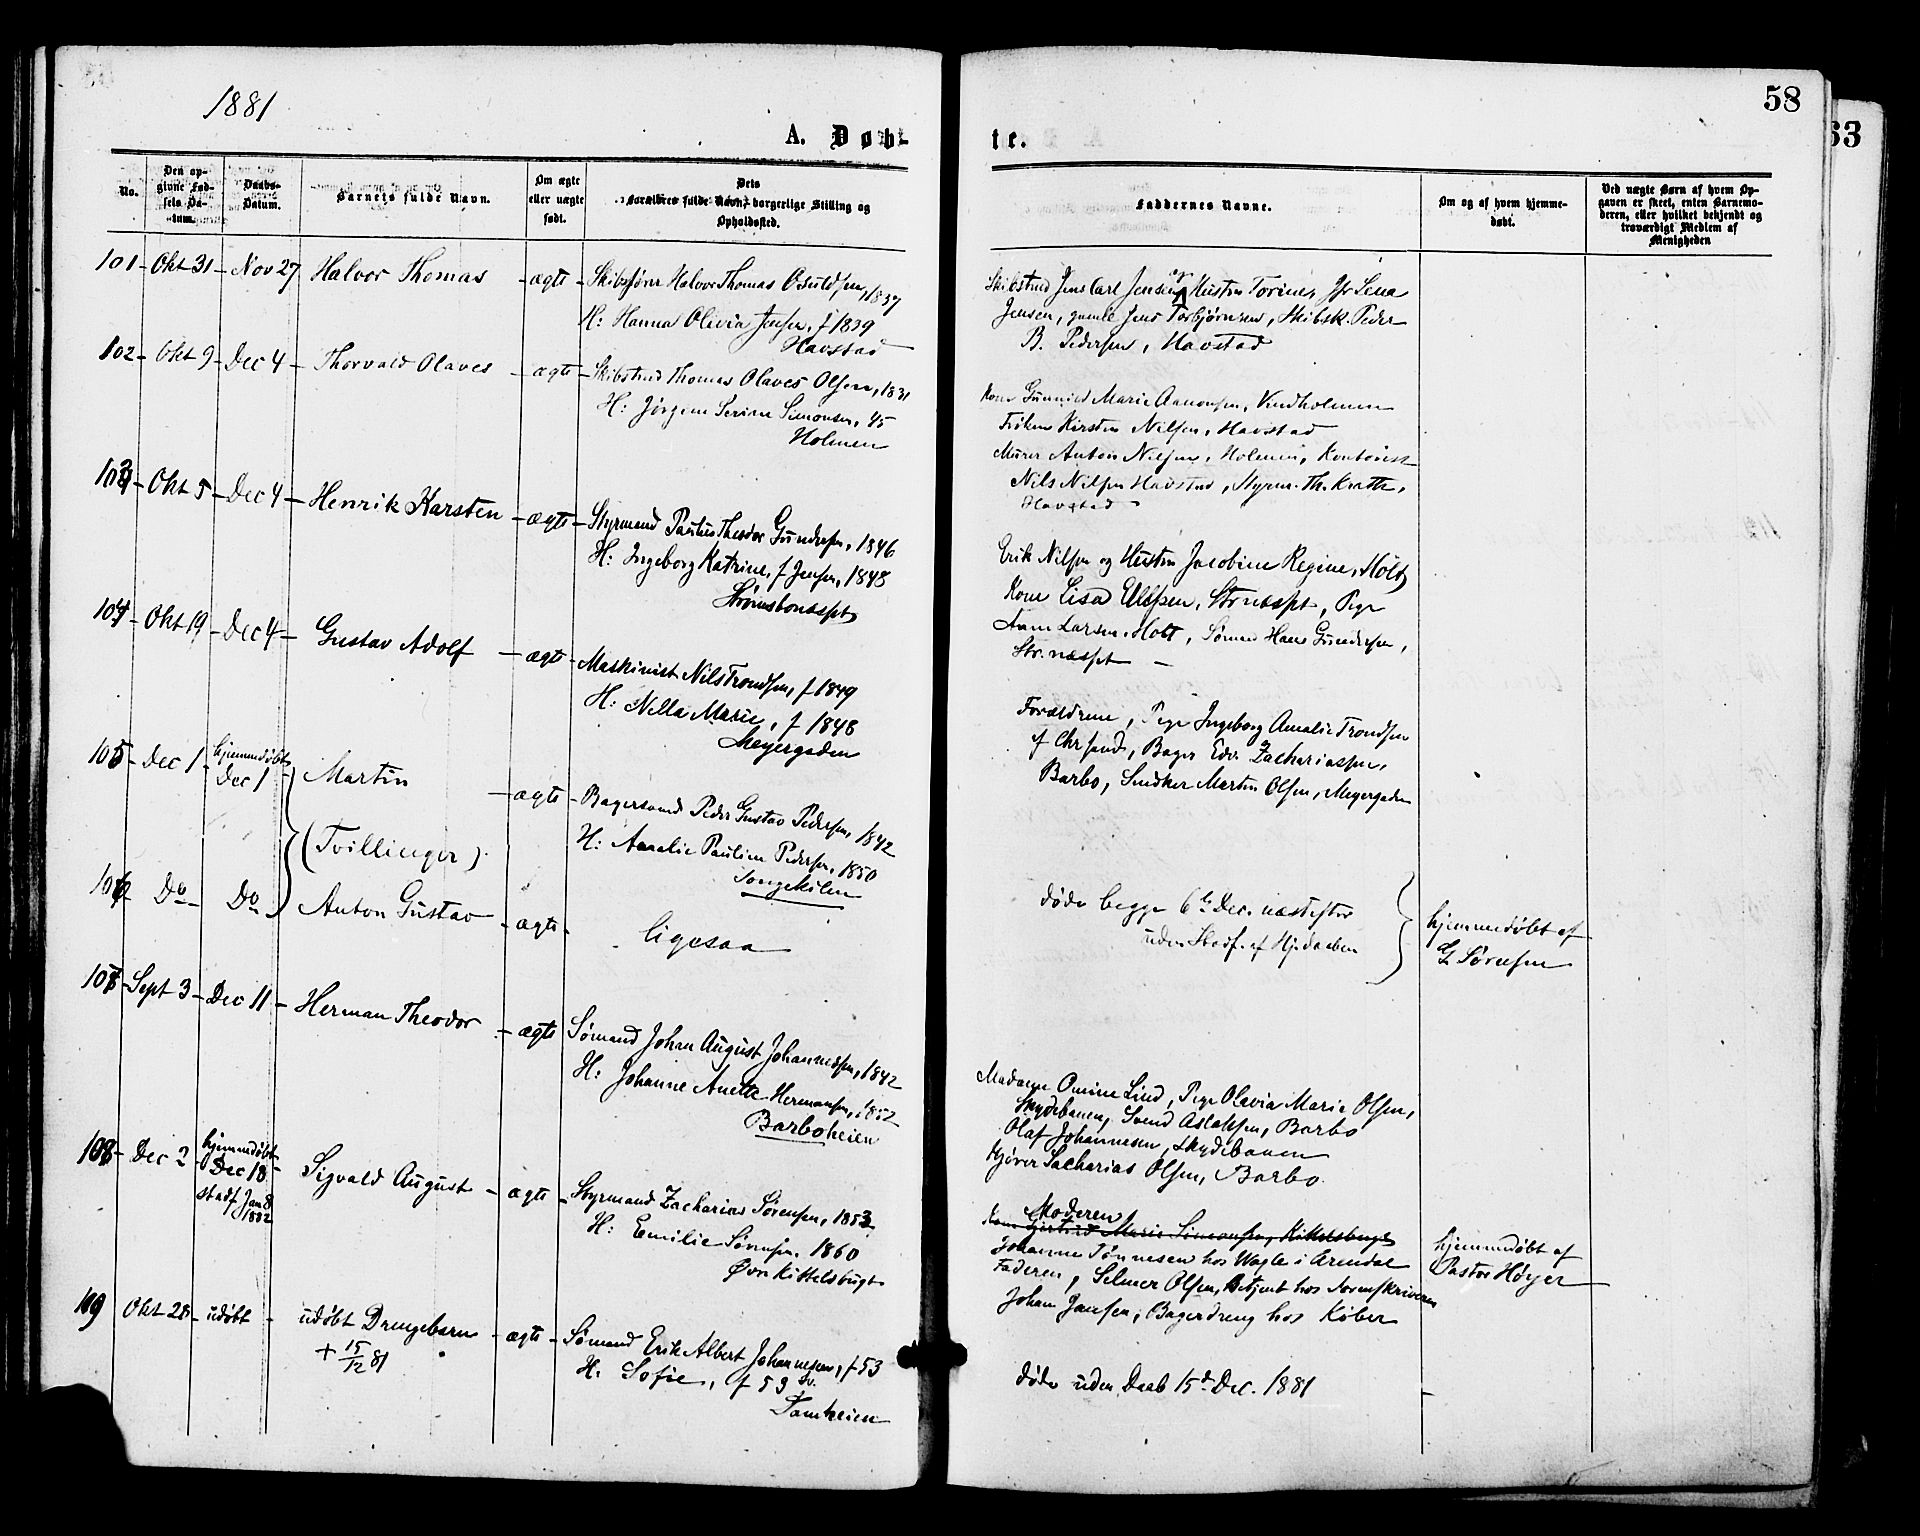 1881
58
63
A. Døbte.
No.
Den opgivne Fødsels Datum.
Daabs-Datum.
Barnets fulde Navn.
Om ægte eller uægte født.
Dets Forældres fulde Navn, borgerlige Stilling og Opholdssted.
Faddernes Navne.
Om og af hvem hjemmedøbt.
Ved uægte Børn af hvem Opgaven er skeet, enten Barnemoderen, eller hvilket bekjendt og troværdigt Medlem af Menigheden
101 - Okt 31 - Nov 27 Halvor Thomas - ægte - Skibsfører Halvor Thomas Osuldsen, 1837
H: Hanna Olivia Jensen, f 1839
Havstad
Skibstmd Jens Carl Jensen og Hustru Torine, Jfr Lina
Jensen, gamle Jens Torbjørnsen, Skibsk. Peder
B. Pedersen, Havstad
102 - Okt 9 - Dec 4 - Thorvald Olaves - ægte - Skibstmd Thomas Olaves Olsen, 1831
H: Jørgine Serine Simonsen, 45
Holmen
Kone Gunnild Marie Aanonsen, Vindholmen
Frøken Kirsten Nilsen, Havstad
Murer Anton Nilsen, Holmen, Kontorist
Nils Nilsen Havstad, Styrm. Th. Knath,
Havstad -
103 - Okt 5 - Dec 4 - Henrik Karsten - ægte - Styrmand Paulus Theodor Gundersen, 1846
H: Ingeborg Katrine, f Jensen, 1848
Strømsbonæsset
Erik Nilsen og Hustru Jacobine Regine, Holt
Kone Lisa Ellefsen, Str næsset, Pige
Anne Larsen, Holt, Sømand Hans Gundersen,
Str. næsset -
104 - Okt 19 - Dec 4 - Gustav Adolf - ægte - Maskinist Nils Trondsen, f 1849
H: Nella Marie, f 1848
Meyergaden
Forældrene, Pige Ingeborg Amalie Trondsen
af Chrsand, Bager Edv. Zachariassen,
Barbo, Snedker Martin Olsen, Meyergaden
105 - Dec 1 - hjemmedøbt Dec 1 - Martin - ægte - Bagersvend Peder Gustav Pedersen, 1842
(Tvillinger)
H: Amalie Pauline Pedersen, 1850
Songekilen
106 - Do - Do - Anton Gustav - ægte - ligesaa
døde begge 6te Dec. næstefter
uden Stadf. af Hj.daaben
hjemmedøbt af
G Sørensen
107 - Sept 3 - Dec 11 - Herman Theodor - ægte Sømand Johan August Johannessen, 1842
H: Johanne Anette Hermansen, 1852
Barboheien
Madame Omine Lind, Pige Olavia Marie Olsen,
Skydebanen, Svend Aslaksen, Barbo
Olaf Johannesen, Skydebanen
Kjører Sacharias Olsen, Barbo.
108 - Dec 2 - hjemmedøbt Dec 18 - Sigvald August - ægte - Styrmand Zacharias Sørensen, 1853
stadf Jan 8 1882
H: Emilie Sørensen, 1860
Øvre Kittelsbugt
Moderen
Kone Gjertrud Marie Simonsen, Kittelsbugt
Johanne Tønnesen hos Wagle i Arendal
Faderen, Selmer Olsen, Betjent hos Sorenskriveren
Johan Jansen, Bagerdreng hos Køber
hjemmedøbt af
Pastor Høyer
109 Okt 28 - udøbt - udøbt Drengebarn - ægte - Sømand Erik Albert Johannesen, f 53
+ 15/12 81
H. Sofie, f 53
Tomheien
døde uden Daab 15de Dec. 1881